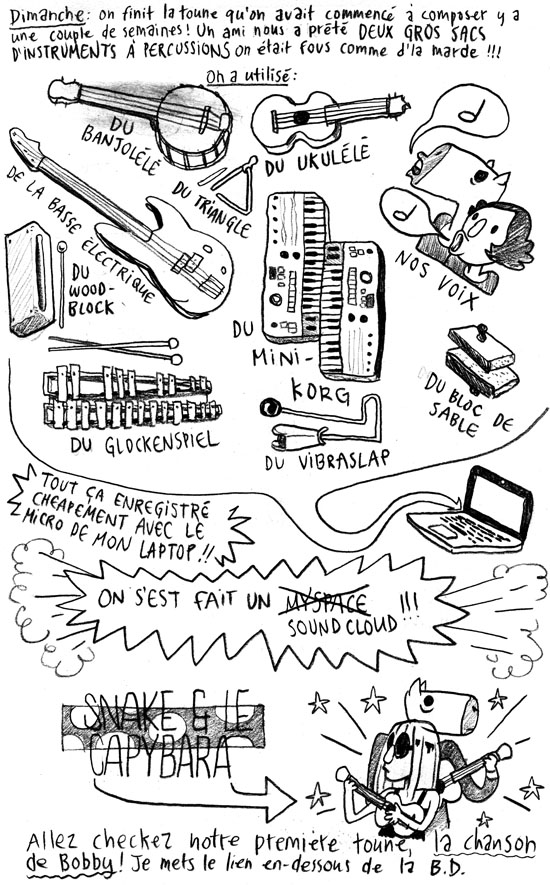 Dimanche: on finit la toune qu'on avait commencé à composer y a
une couple de semaines! Un ami nous a prêté DEUX GROS SACS
D'INSTRUMENTS À PERCUSSIONS on était fous comme d'la marde !!!
On a utilisé:
DU
BANJOLÉLÉ
DU UKULÉLÉ
DU TRIANGLE
DE LA BASSE ÉLECTRIQUE
NOS VOIX
DU
WOOD-
BLOCK
DU
MINI-
KORG
DU BLOC DE
SABLE
DU GLOCKENSPIEL
DU VIBRASLAP
TOUT ÇA ENREGISTRÉ
CHEAPEMENT AVEC LE
MICRO DE MON LAPTOP.!!
ON S'EST FAIT UN MYSPACE !!!
SOUNDCLOUD
SNAKE & LE
CAPYBARA
Allez checkez notre première toune, la chanson
de Bobby! Je mets le lien en-dessous de la B.D.